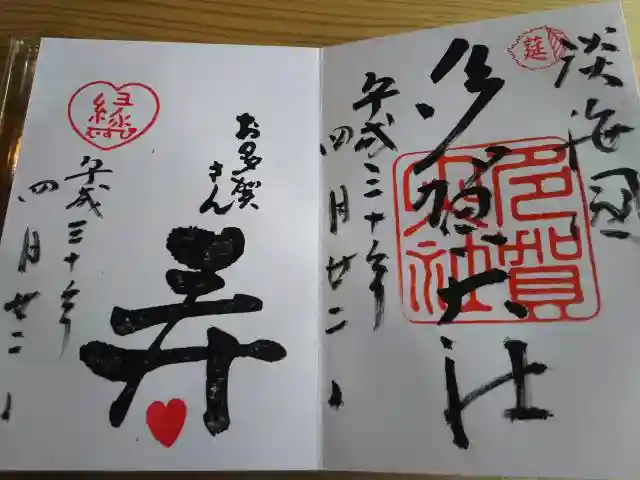 延
淡海国
多賀大社
多賀大社
平成三十年
四月廿二日
お多賀
さん
寿
平成三十年
四月廿二日